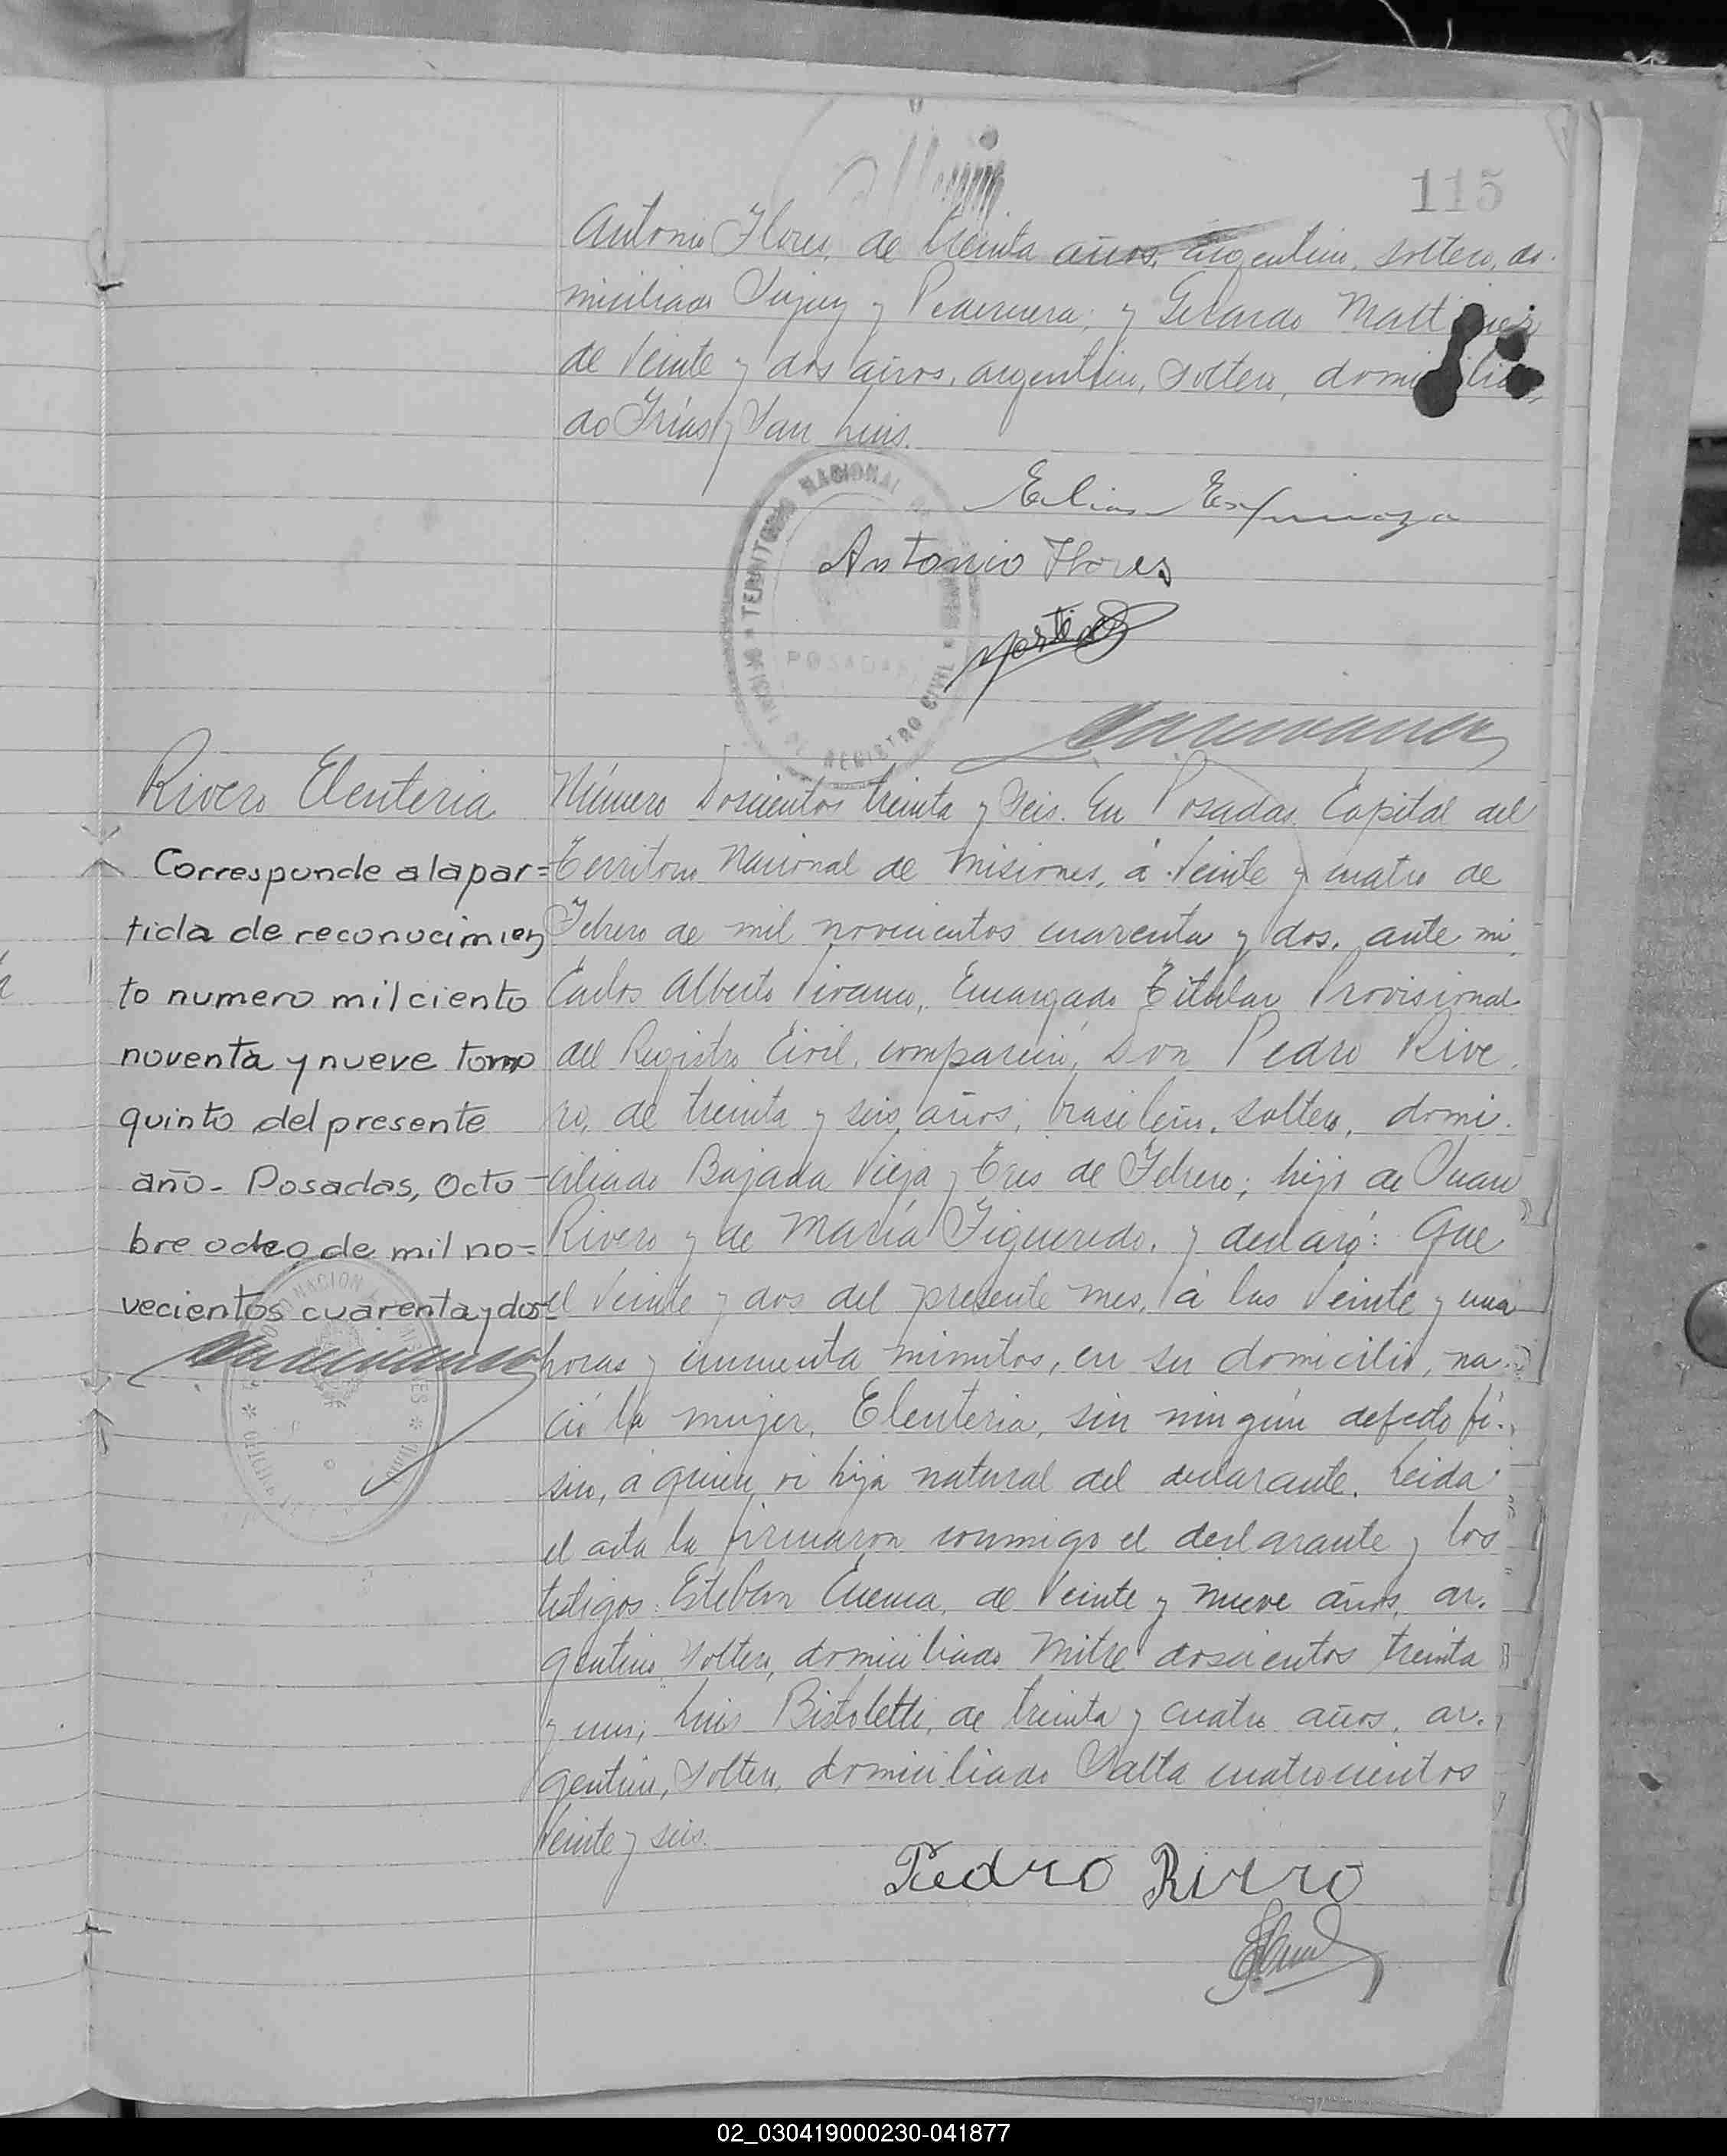 115
Antonio Flores, de treinta años, argentino, soltero, do-
miciliado Jujuy y Pedernera; y Gerardo Martinez
de veinte y dos años, argentino, soltero, domicilia-
do Frías y San Luis.
TERRITORIO NACIONAL DE MISIONES
POSADAS
REGISTRO CIVIL
Elias Espinoza
Antonio Flores
Rivero Eleuteria
Corresponde a la par=
tida de reconocimien
to numero mil ciento
noventa y nueve tomo
quinto del presente
año- Posadas, Octu-
bre ocho de mil no=
vecientos cuarenta y dos-
Número Doscientos treinta y seis. En Posadas, Capital del
Territorio Nacional de Misiones, á veinte y cuatro de
Febrero de mil novecientos cuarenta y dos, ante mi,
Carlos Alberto Vivanco, Encargado Titular Provisional
del Registro Civil, compareció, Don Pedro Rive
ro, de treinta y seis años, brasileño, soltero, domi-
ciliado Bajada Vieja y Tres de Febrero; hijo de Juan
Rivero y de María Figueredo, y declaró: Que
el veinte y dos del presente mes, á las veinte y una
horas y cincuenta minutos, en su domicilio, na-
ció la mujer, Eleuteria, sin ningún defecto fí-
sico, á quien vi hija natural del declarante. Leida
el acta la firmaron conmigo el declarante y los
testigos: Esteban Cuenca, de veinte y nueve años, ar-
gentino, soltero, domiciliado Mitre doscientos treinta
y uno; Luis Bistoletti, de treinta y cuatro años, ar-
gentino, soltero, domiciliado Salta cuatrocientos
veinte y seis.
Pedro Rirro
02_030419000230-041877